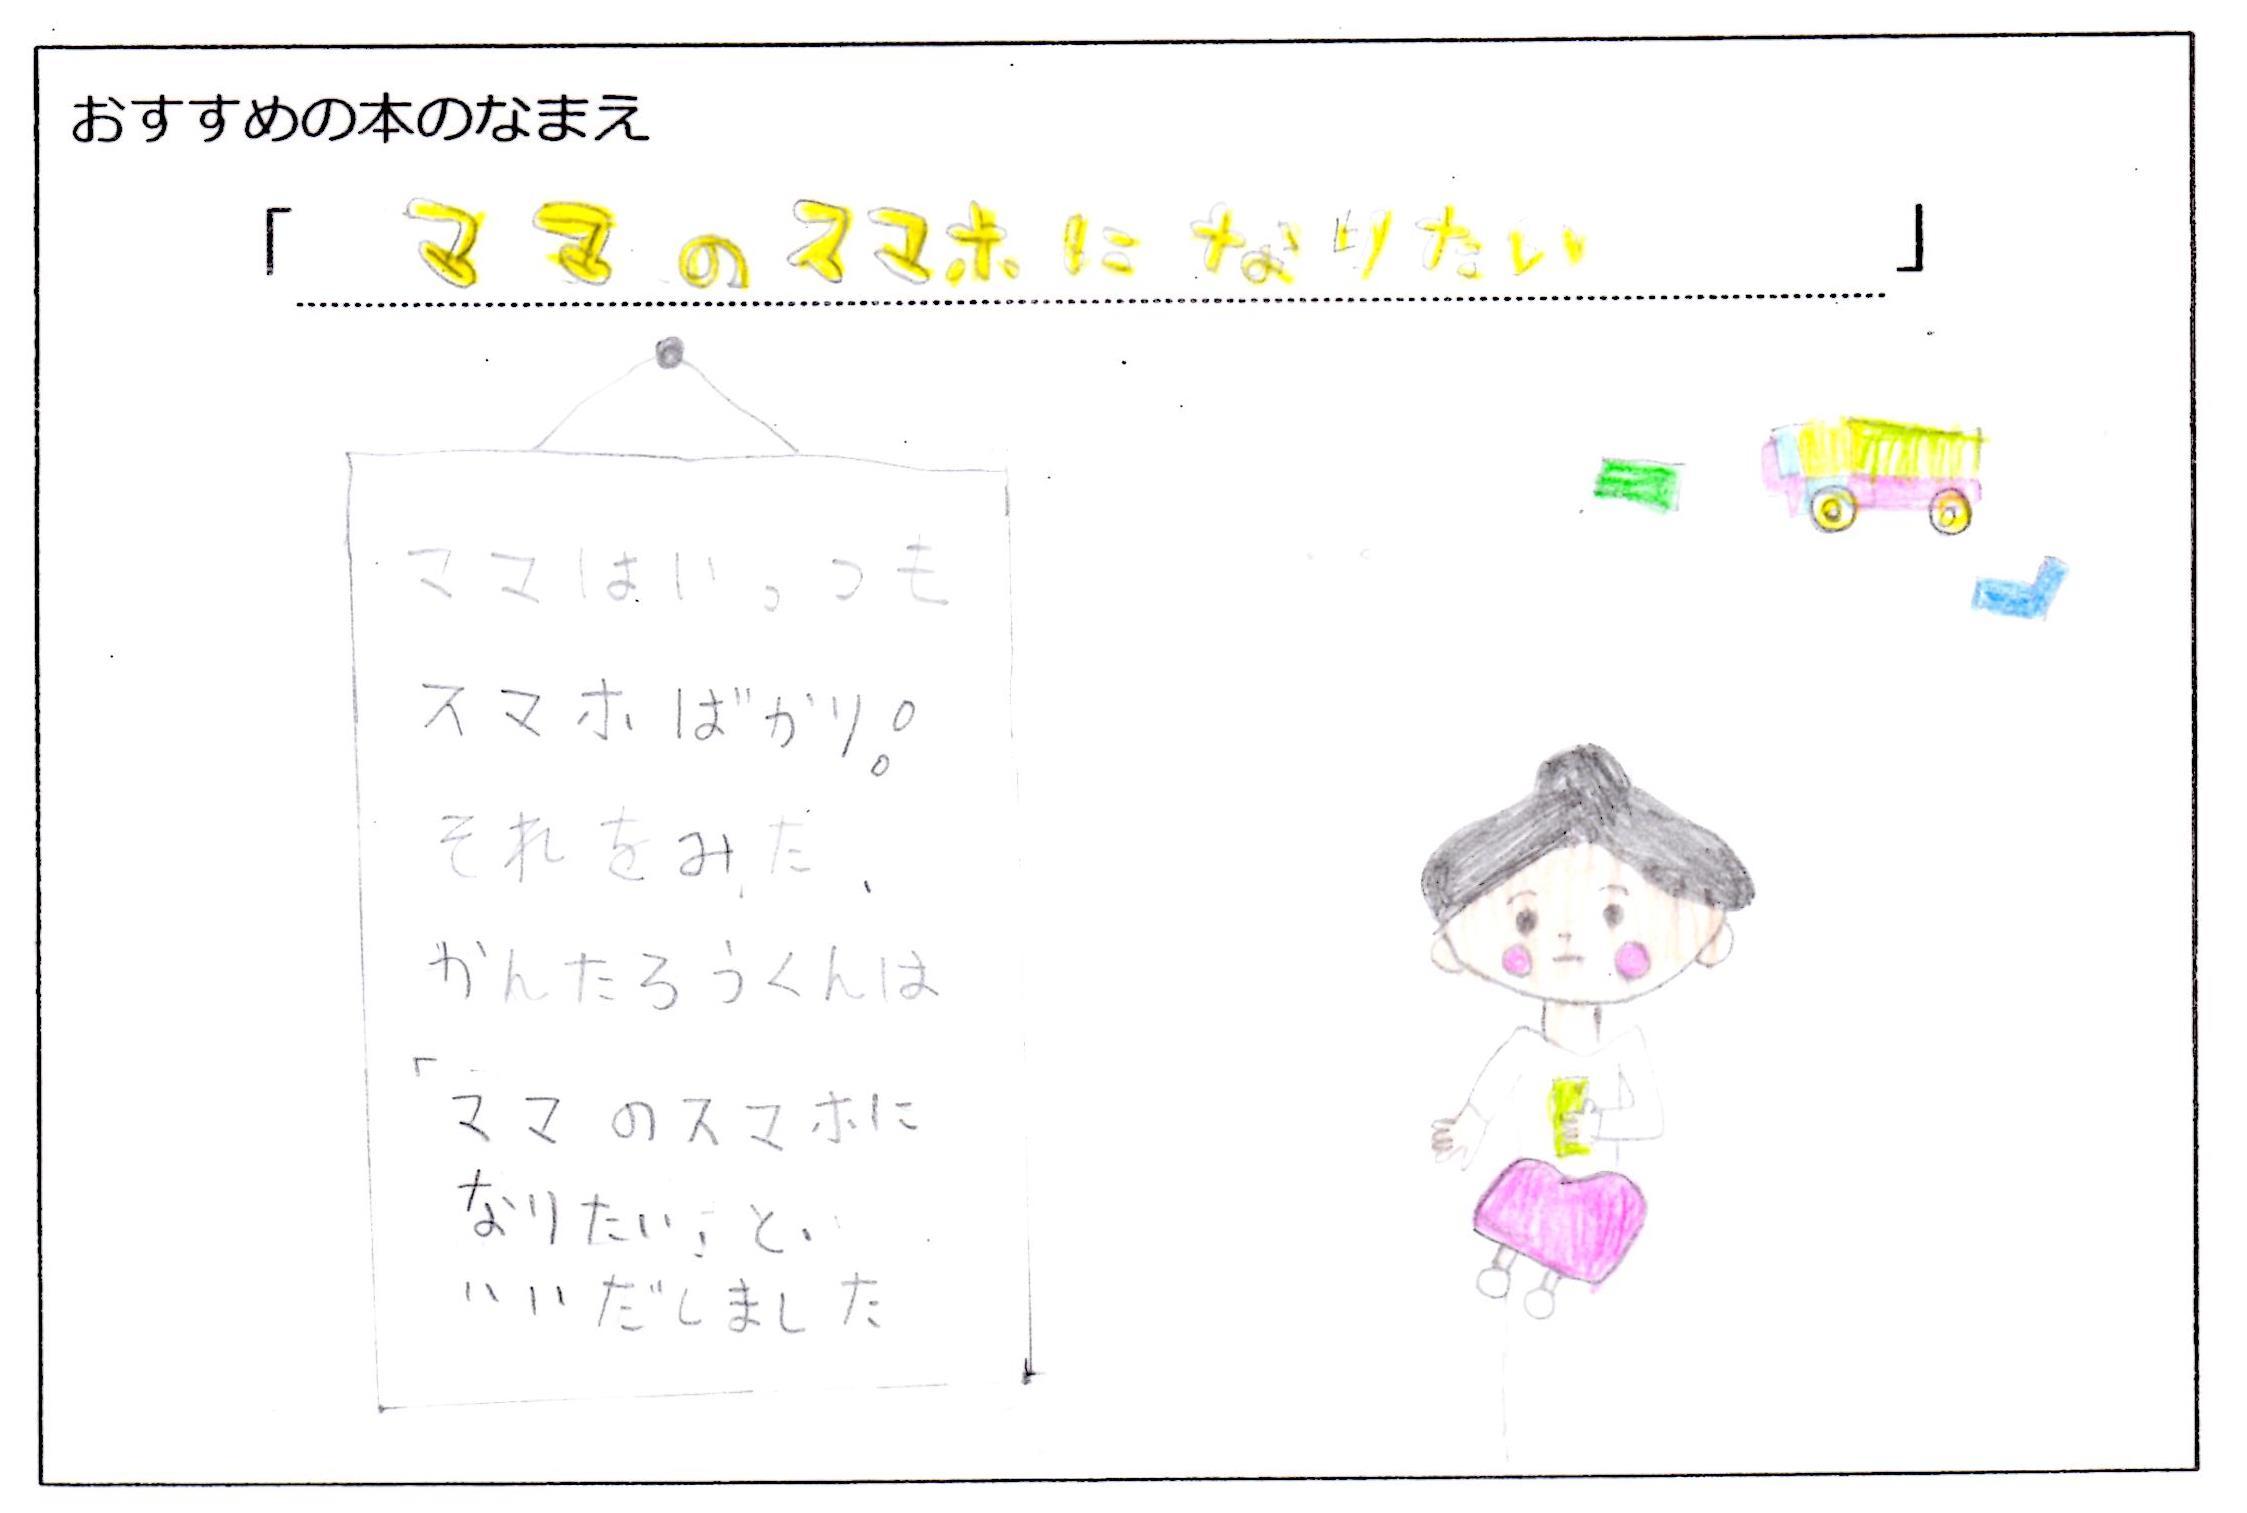 おすすめの本のなまえ
「ママのスマホになりたい」
ママはいっつも
スマホばかり!。
それをみた、
かんたろうくんは
「ママのスマホに
なりたい!」と、
いいだしました